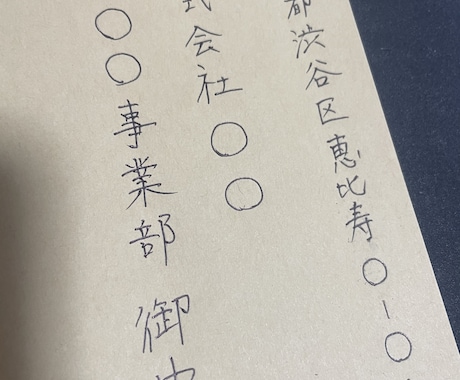 都渋谷区恵比寿〇-〇
式会社〇〇
〇〇事業部 御